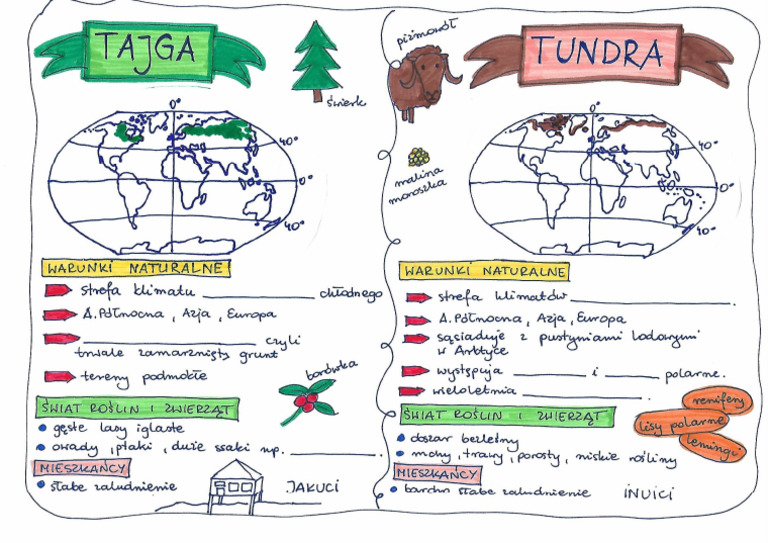 TAJGA
świerk
0°
40°
0°
40°
WARUNKI NATURALNE
strefa klimatu __________ chłodnego
A. Północna, Azja, Europa
__________ czyli
trwale zamarznięty grunt
tereny podmokłe
borówka
ŚWIAT ROŚLIN I ZWIERZĄT
gęste lasy iglaste
owady, ptaki, duże ssaki np. __________.
MIESZKAŃCY
słabe zaludnienie
JAKUCI
piżmowół
TUNDRA
malina
moroszka
0°
40°
0°
40°
WARUNKI NATURALNE
strefa klimatów __________.
A. Północna, Azja, Europa
sąsiaduje z pustyniami lodowymi
w Arktyce
występuje ______ i ______ polarne.
wieloletnia __________.
renifery
lisy polarne
lemingi
ŚWIAT ROŚLIN I ZWIERZĄT
obszar bezleśny
mchy, trawy, porosty, niskie rośliny
MIESZKAŃCY
bardzo słabe zaludnienie
INUICI